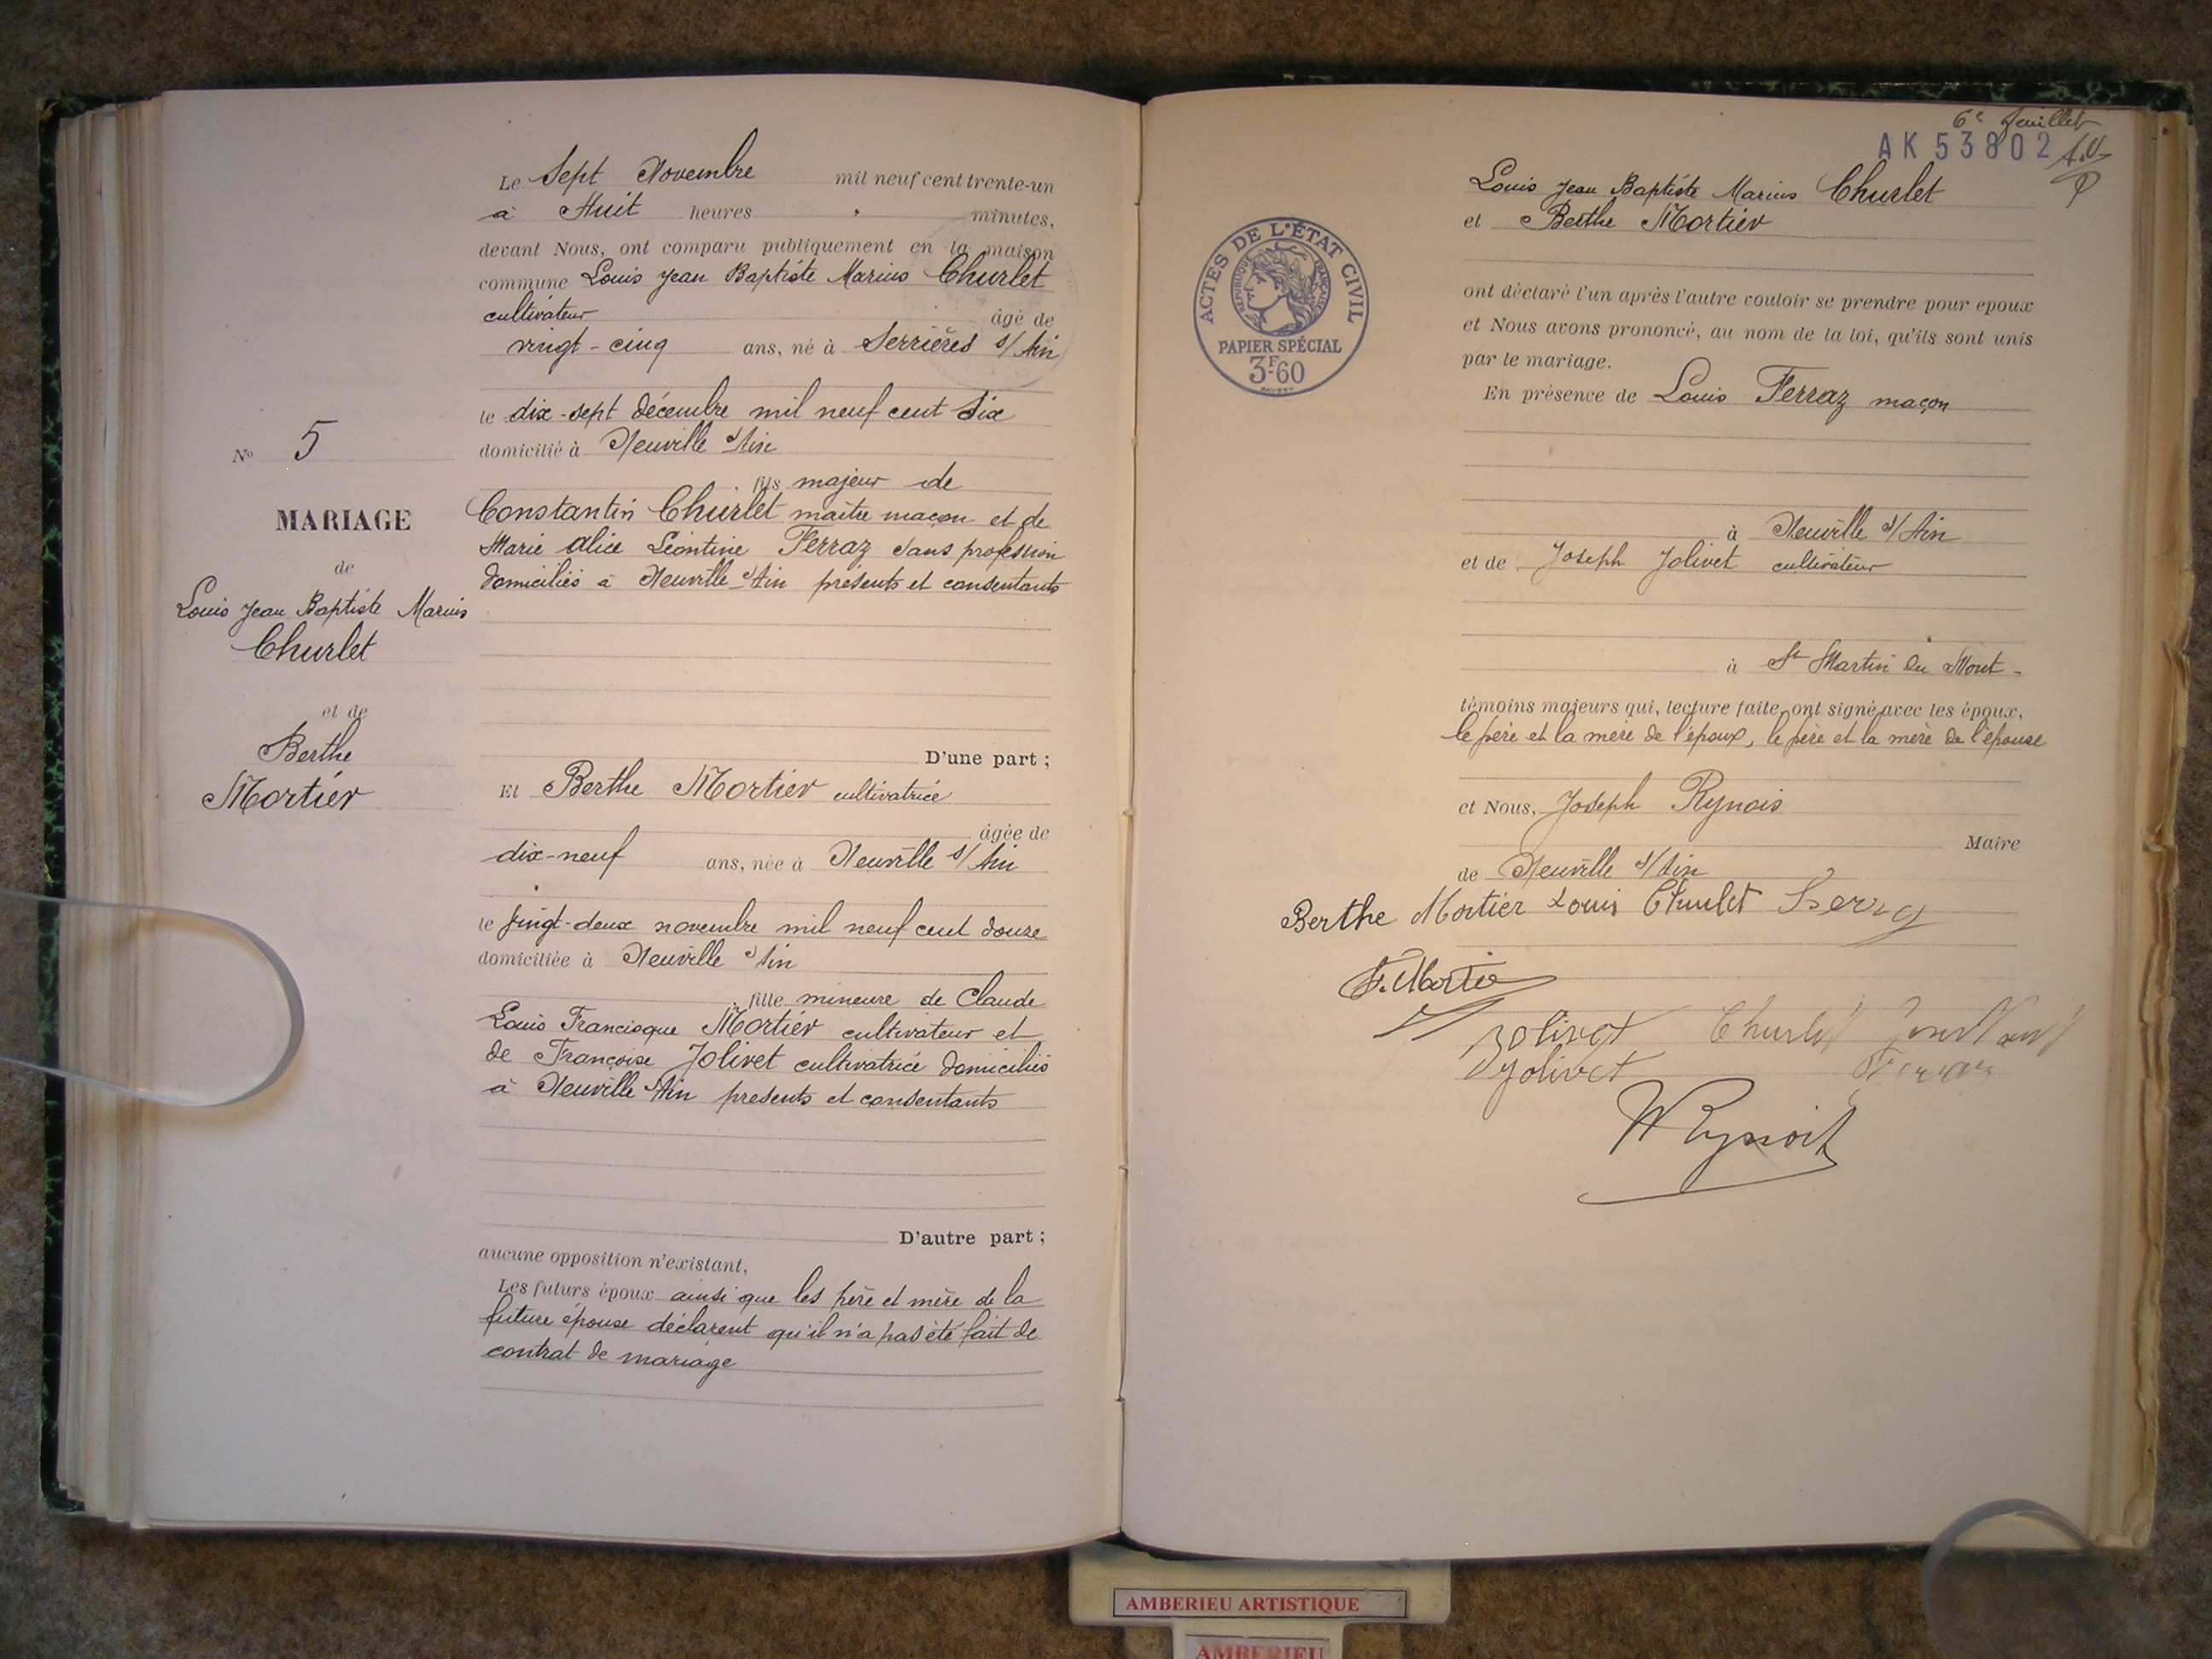 Le Sept Novembre mil neuf cent trente-un
à Huit heures minutes,
devant Nous, ont comparu publiquement en la maison
commune Louis Jean Baptiste Marius Churlet
cultivateur âgé de
vingt-cinq ans, né à Serrières s/Ain
le dix-sept décembre mil neuf cent six
domicilié à Neuville s/Ain
fils majeur de
Constantin Churlet maître maçon et de
Marie Alice Léontine Ferraz sans profession
domiciliés à Neuville s/Ain présents et consentants
D'une part ;
Et Berthe Mortier cultivatrice
âgée de
dix-neuf ans, née à Neuville s/Ain
le vingt-deux novembre mil neuf cent douze
domiciliée à Neuville s/Ain
fille mineure de Claude
Louis Francisque Mortier cultivateur et
de Françoise Jolivet cultivatrice domiciliés
à Neuville s/Ain présents et consentants
D'autre part ;
aucune opposition n'existant,
Les futurs époux ainsi que les père et mère de la
future épouse déclarent qu'il n'a pas été fait de
contrat de mariage
No 5
MARIAGE
de
Louis Jean Baptiste Marius
Churlet
et de
Berthe
Mortier
6e feuillet
AK 53802
Louis Jean Baptiste Marius Churlet
et Berthe Mortier
ACTES DE L'ÉTAT CIVIL
RÉPUBLIQUE FRANÇAISE
PAPIER SPÉCIAL
3F60
ont déclaré l'un après l'autre vouloir se prendre pour époux
et Nous avons prononcé, au nom de la loi, qu'ils sont unis
par le mariage.
En présence de Louis Ferraz maçon
à Neuville s/Ain
et de Joseph Jolivet cultivateur
à St Martin du Mont
témoins majeurs qui, lecture faite, ont signé avec les époux,
le père et la mère de l'époux, le père et la mère de l'épouse
et Nous, Joseph Rynois
Maire
de Neuville s/Ain
Berthe Mortier Louis Churlet
F. Mortier
Jolivet Churlet
Jolivet Ferraz
AMBERIEU ARTISTIQUE
AMBERIEU